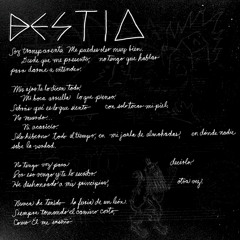 BESTIA
Soy transparente Me puedes oler muy bien.
Desde que me presento, no tengo que hablar
para darme a entender.
Mis ojos te lo dicen todo,
Mi boca aúlla lo que pienso,
Sabrás qué es lo que siento con solo tocar mi piel
No muerdo.
Tu acaricio
Solo hiberno todo el tiempo, en mi jaula de almohadas, en donde nadie
sabe la verdad.
No tengo voz para decirlo.
Por eso vengo y te lo escribo
He deshonrado a mis principios, otra vez.
Nunca he tenido la furia de un león
Siempre tomando el camino corto
Como Él me enseñó